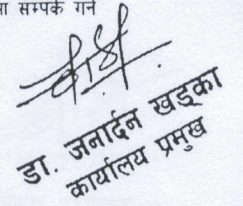 ा सम्पर्क गर्न
डा. जनार्दन खड्का
कार्यालय प्रमुख